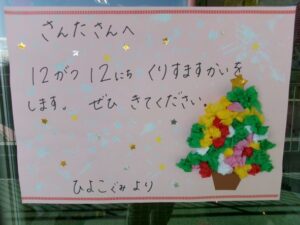 さんたさんへ
12がつ12にち くりすますかいを
します。 ぜひ きてください。
ひよこぐみより